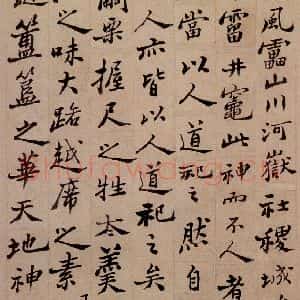 風靁山川河嶽社稷城
霤井竈此神而不人者
當以人道祀之然自
人亦皆以人道祀之矣
繭栗握尺之牲太羹
之味大路越席之素
簠簋之華天地神